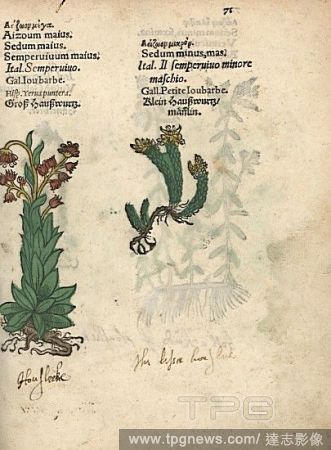 76
Ἀείζωον μέγα.
Aizoum maius.
Sedum maius.
Semperuiuum maius.
Ital. Semperuiuo.
Gal. Ioubarbe.
Hisp. Yerua puntera.
Groß Haußwurtz
Ἀείζωον μικρόν.
Sedum minus, mas.
Ital. Il semperuiuo minore
maschio.
Gall. Petite Ioubarbe.
Klein Haußwurtz
mänlin.
Houslecke
the lesse housleek
TPG
www.tpgnews.com/ 達志影像